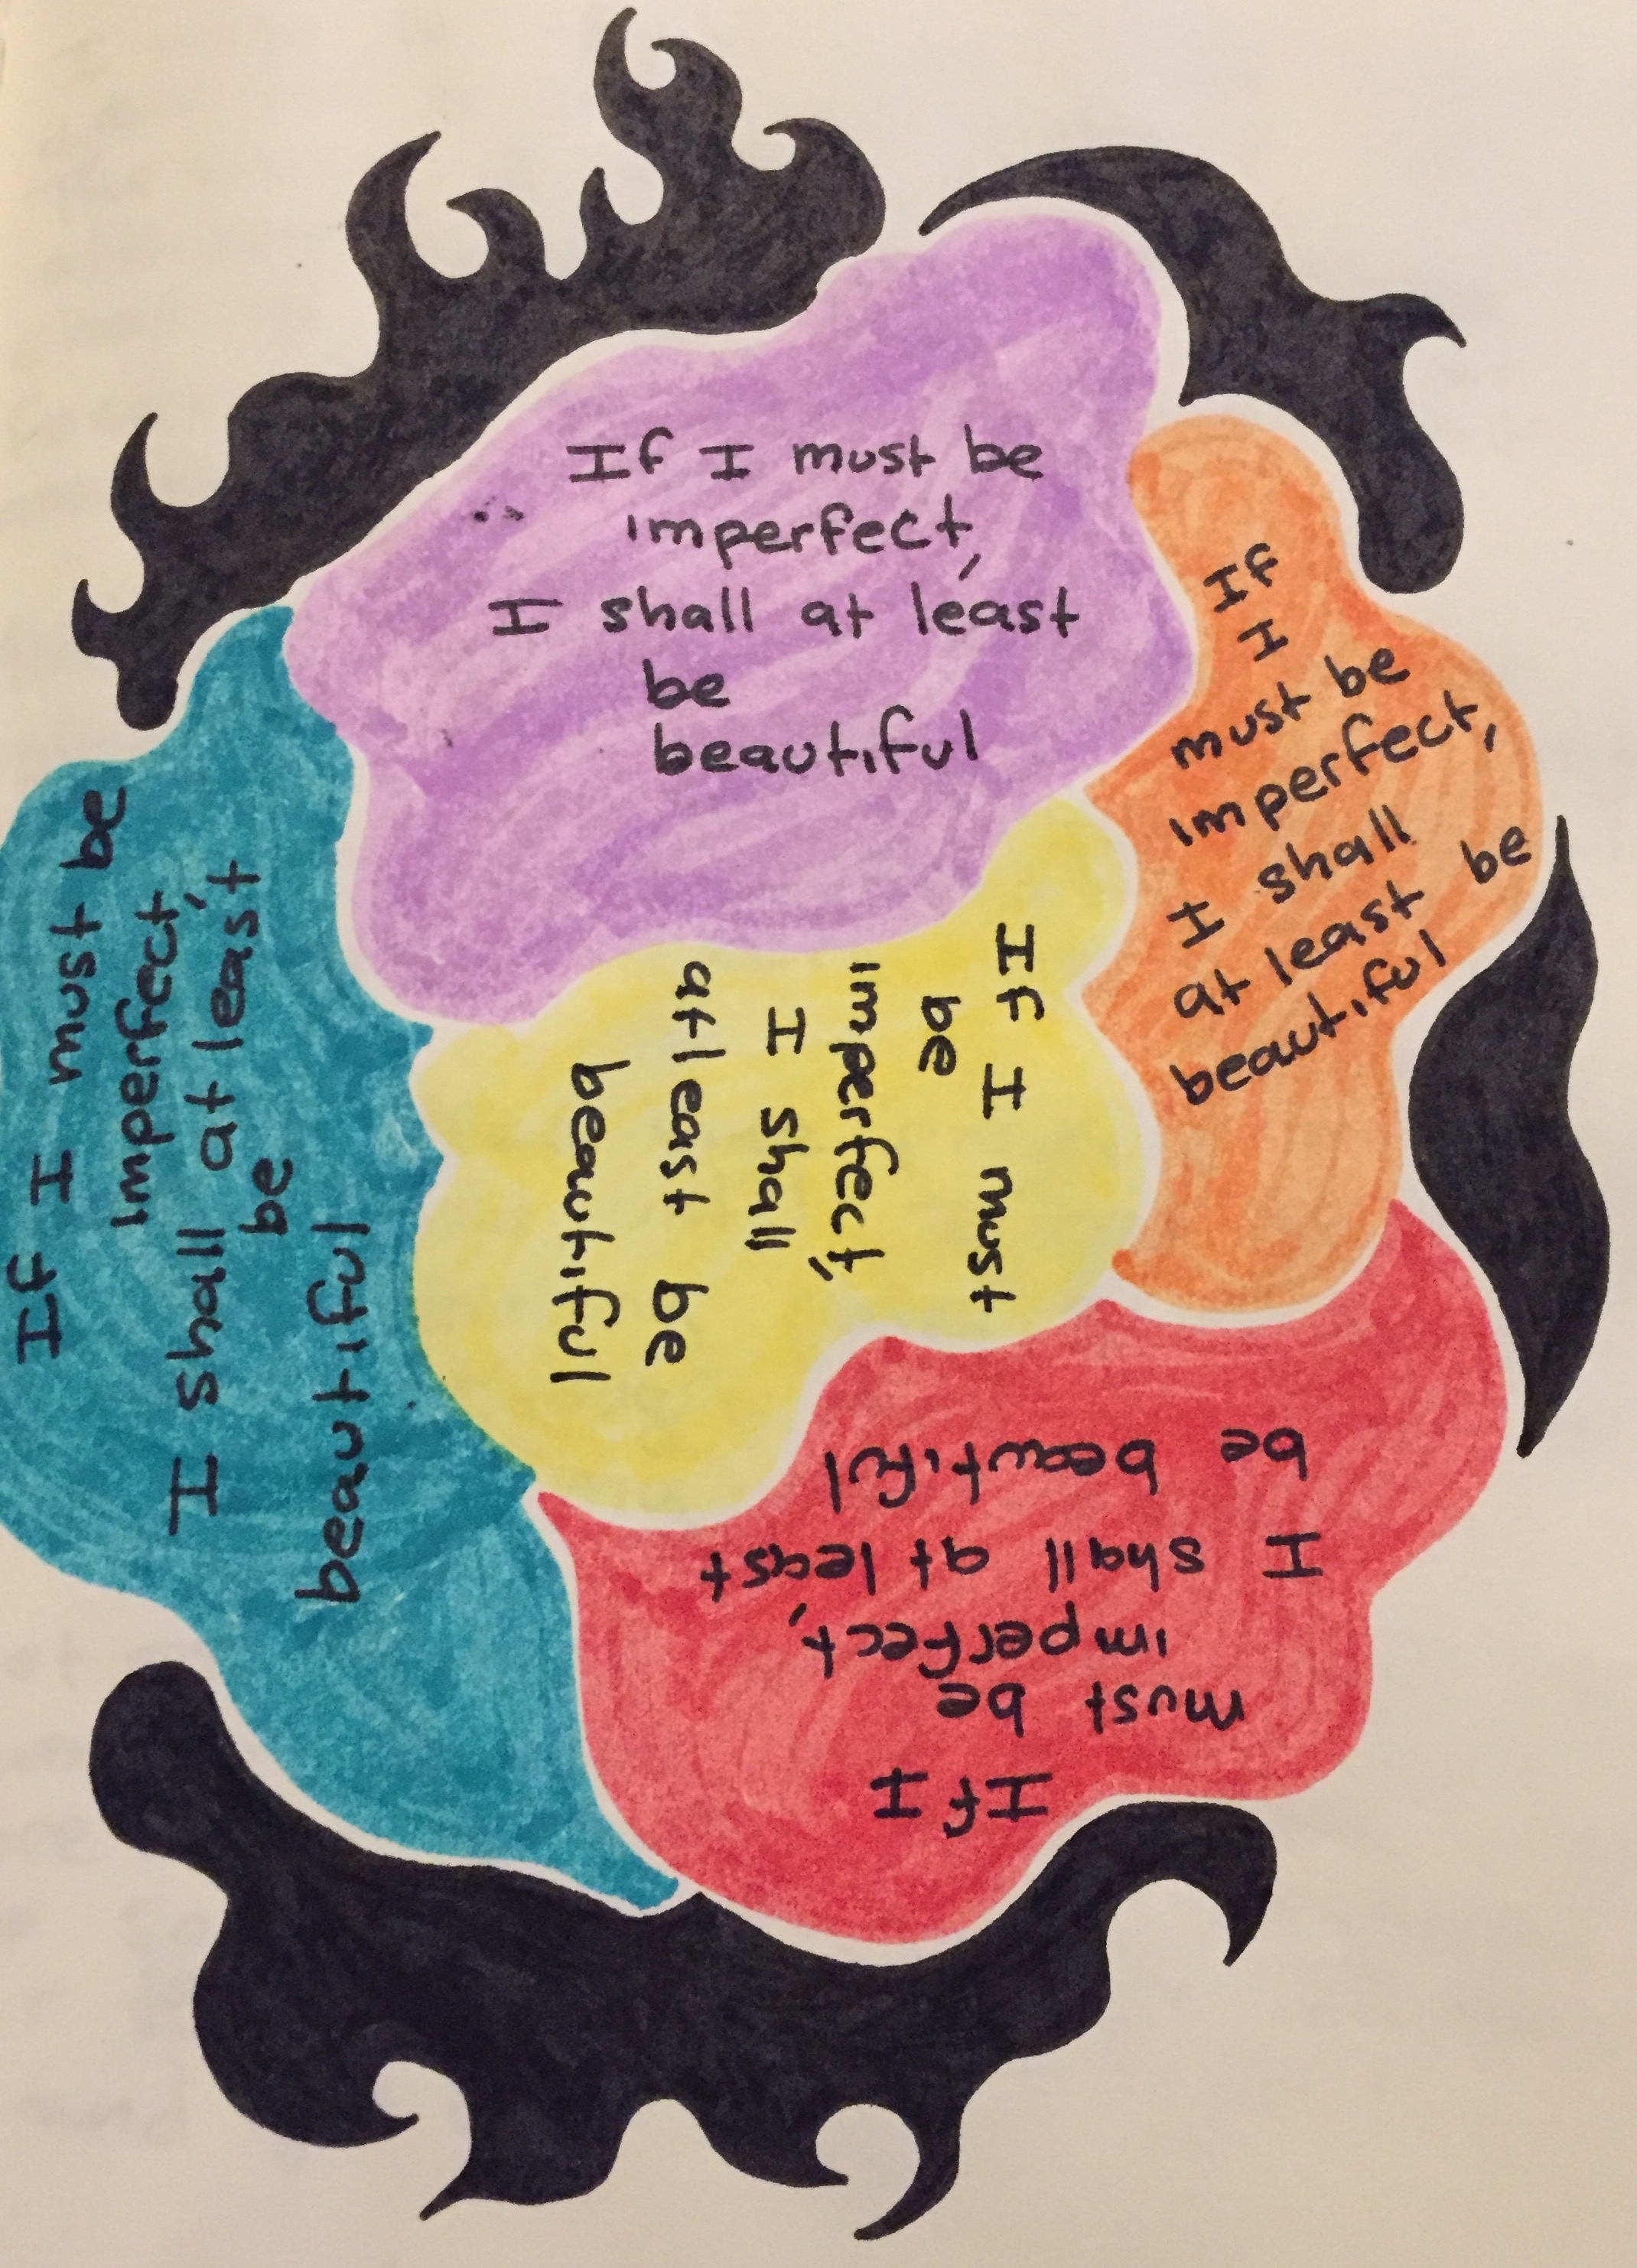 If I must be
imperfect,
I shall at least
be
beautiful
If
I
must be
imperfect,
I shall
at least be
beautiful
If I must
be
imperfect,
I shall
at least be
beautiful
If I must be
imperfect,
I shall at least
be
beautiful
If I
must be
imperfect,
I shall at least
be beautiful